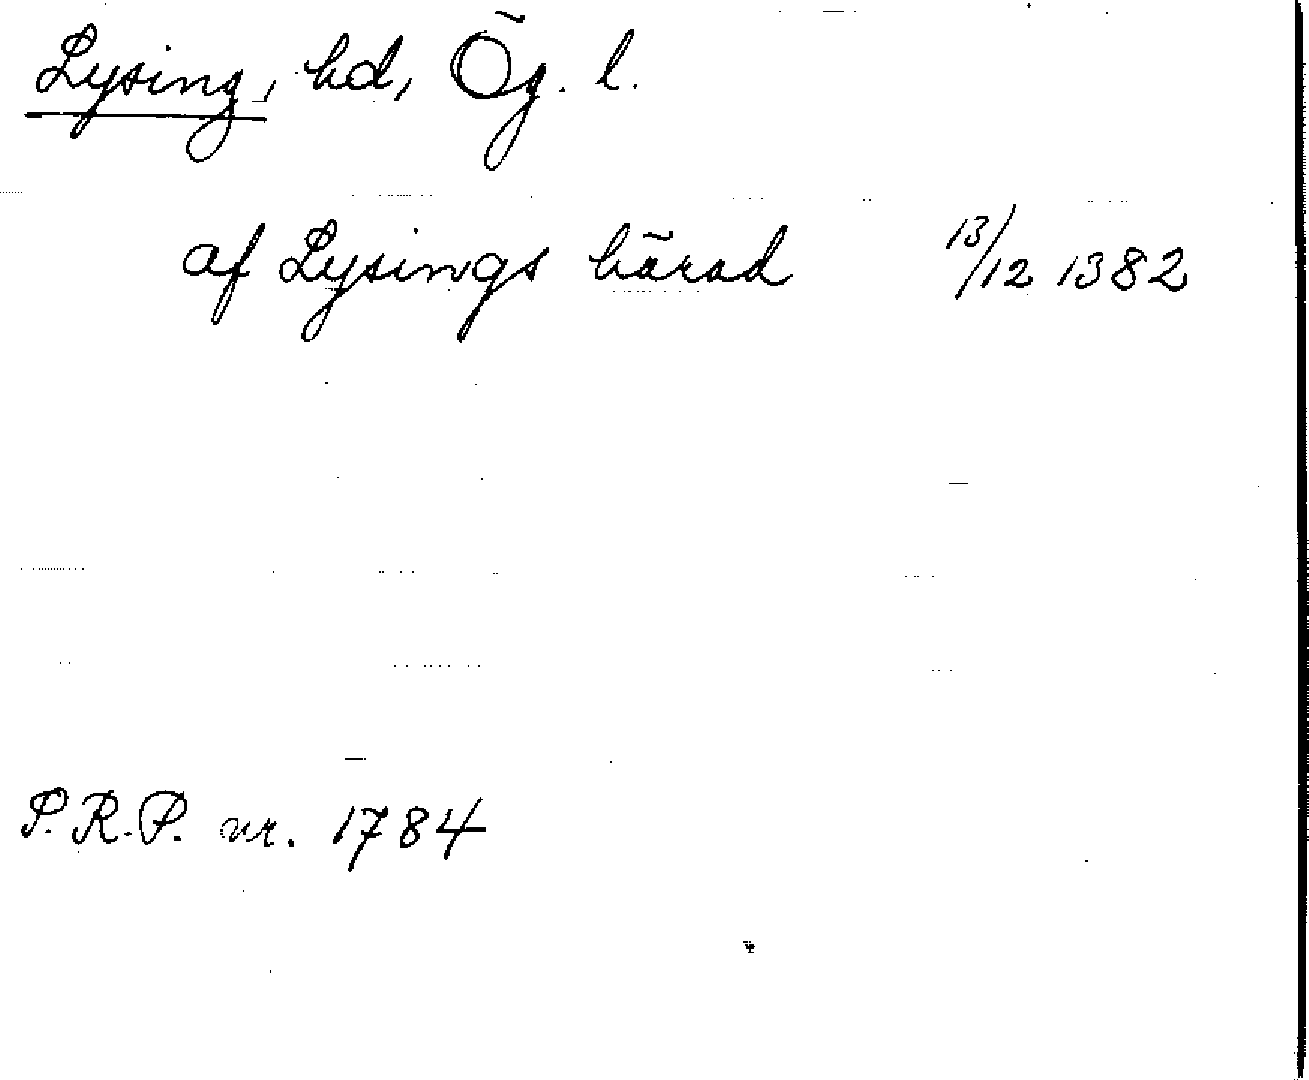 Lysing, hd, Ög. l.
af Lysings härad 13/12 1382
P.R.P. nr. 1784